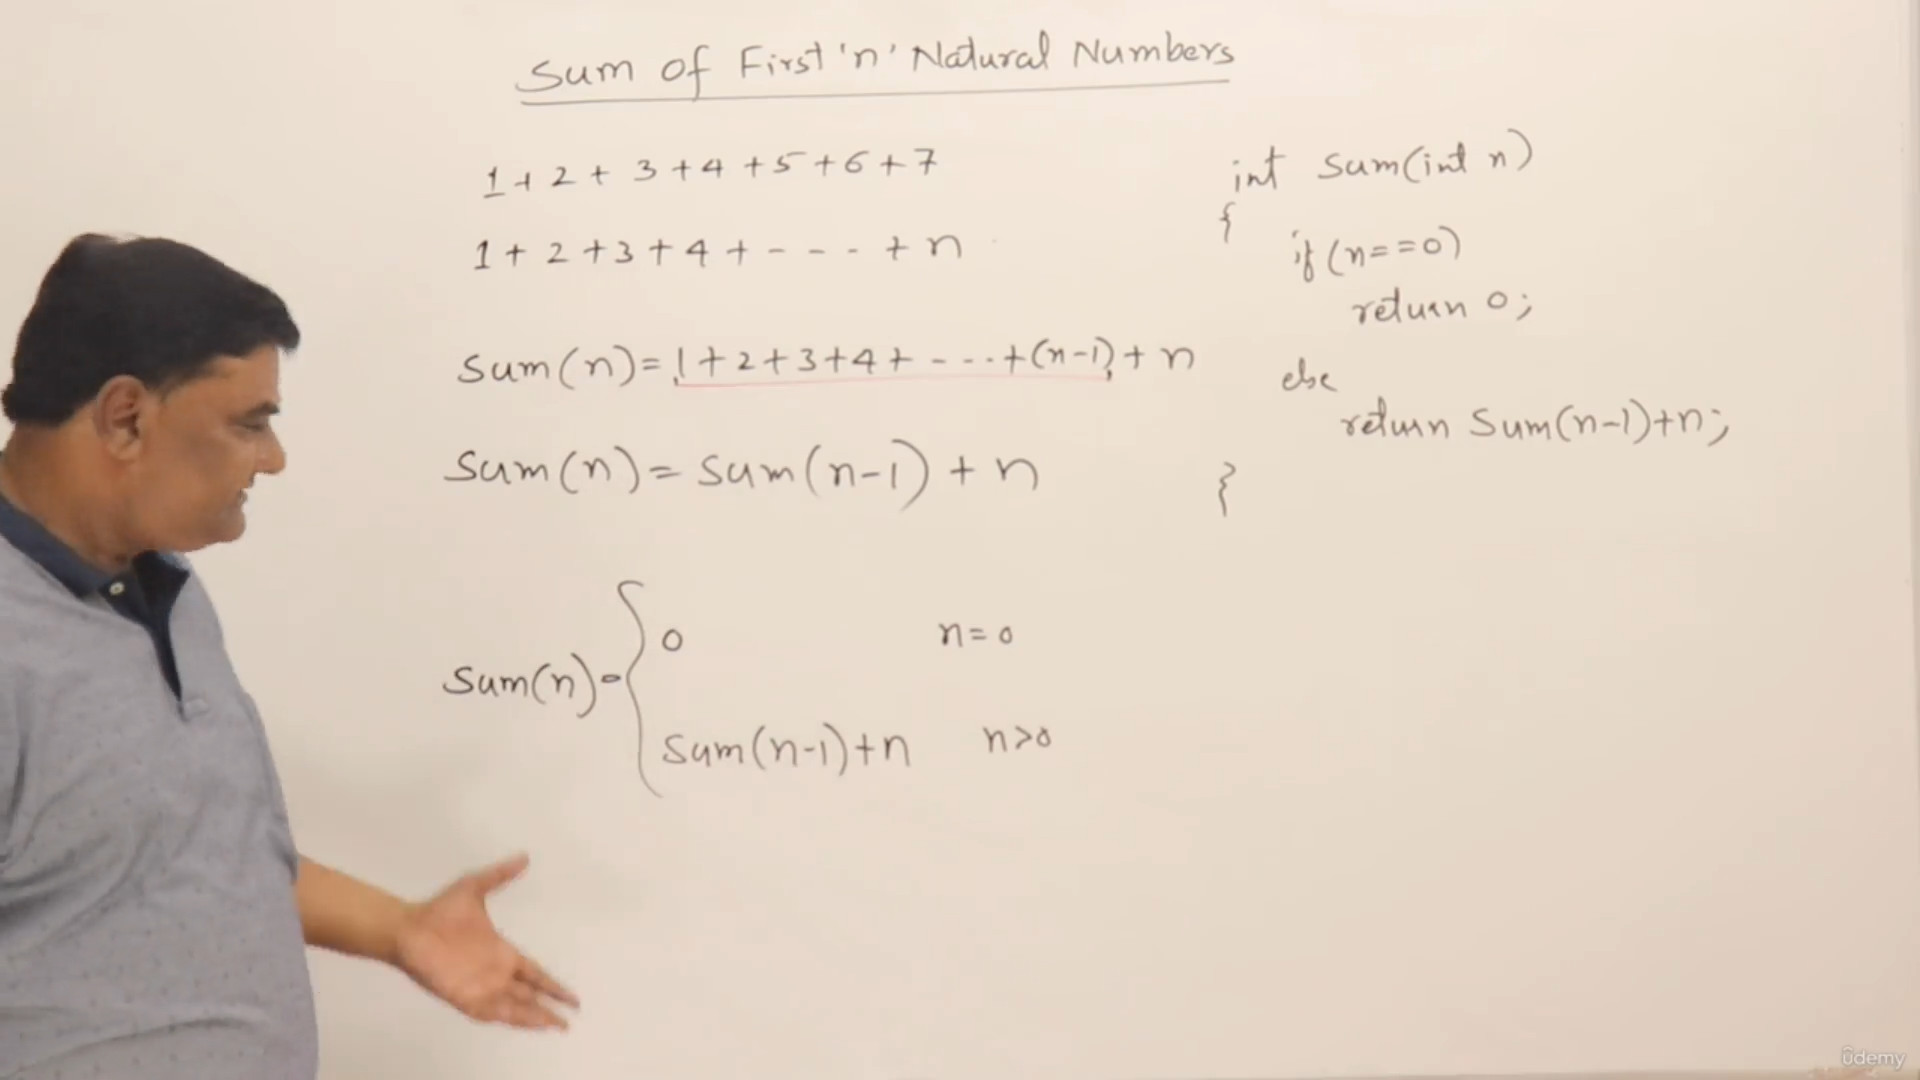 Sum of First 'n' Natural Numbers
1 + 2 + 3 + 4 + 5 + 6 + 7
1 + 2 + 3 + 4 + - - - + n
Sum(n) = 1 + 2 + 3 + 4 + - - - + (n-1) + n
Sum(n) = Sum(n-1) + n
Sum(n) = { 0 n = 0
Sum(n-1)+n n>0
int Sum(int n)
{
if (n==0)
return 0;
else
return Sum(n-1)+n;
}
ûdemy